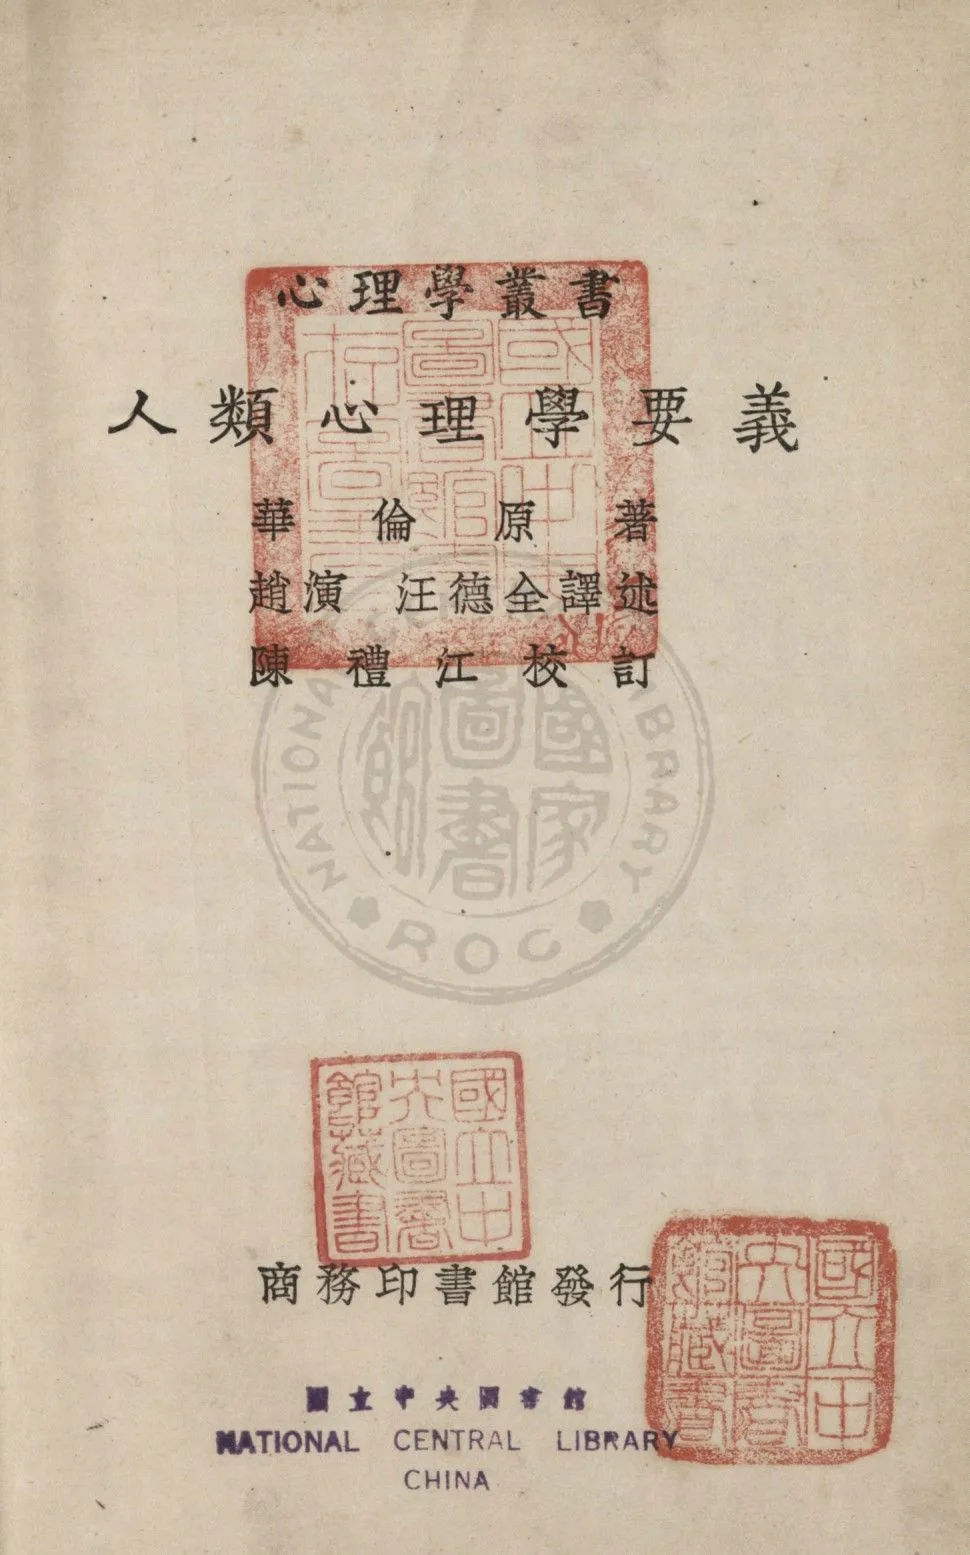 心理學叢書
人類心理學要義
華倫原著
趙演 汪德全譯述
陳禮江校訂
NATIONAL LIBRARY
國家圖書館
ROC
國立中
央圖書
館藏書
商務印書館發行
國立中
央圖書
館藏書
國立中央圖書館
NATIONAL CENTRAL LIBRARY
CHINA